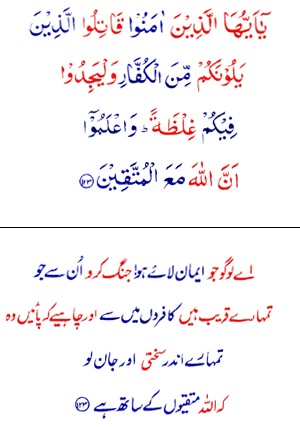 يٰٓاَيُّهَا الَّذِيْنَ اٰمَنُوْا قَاتِلُوا الَّذِيْنَ
يَلُوْنَكُمْ مِّنَ الْكُفَّارِ وَلْيَجِدُوْا
فِيْكُمْ غِلْظَةً ؕ وَاعْلَمُوْۤا
اَنَّ اللّٰهَ مَعَ الْمُتَّقِيْنَ ﴿۱۲۳﴾
اے لوگو جو ایمان لائے ہو! جنگ کرو اُن سے جو
تمہارے قریب ہیں کافروں میں سے اور چاہیے کہ پائیں وہ
تمہارے اندر سختی اور جان لو
کہ اللہ متقیوں کے ساتھ ہے ﴿۱۲۳﴾